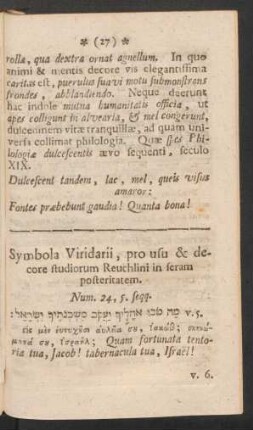 * (27) *
rolla, qua dextra ornat agnellum. In quo
animi & mentis decore vis elegantissima
caritas est, puerulus suavi motu submonstrans
frondes, abblandiendo. Neque deerunt
hac indole mutua humanitatis officia, ut
apes colligunt in alvearia, & mel congerunt,
dulcedinem vitæ tranquillæ, ad quam uni-
versa collimat philologia. Quæ spes Phi-
lologiæ dulcescentis ævo sequenti, seculo
XIX.
Dulcescent tandem, lac, mel, queis visus
amaror:
Fontes præbebunt gaudia! Quanta bona!
Symbola Viridarii, pro usu & de-
core studiorum Reuchlini in seram
posteritatem.
Num. 24, 5. seqq.
מה טבו אהליך יעקב משכנתיך ישראל: v. 5.
σου, ἰακώβ;
σου, ἰσραήλ; Quam fortunata tento-
ria tua, Jacob! tabernacula tua, Israël!
v. 6.